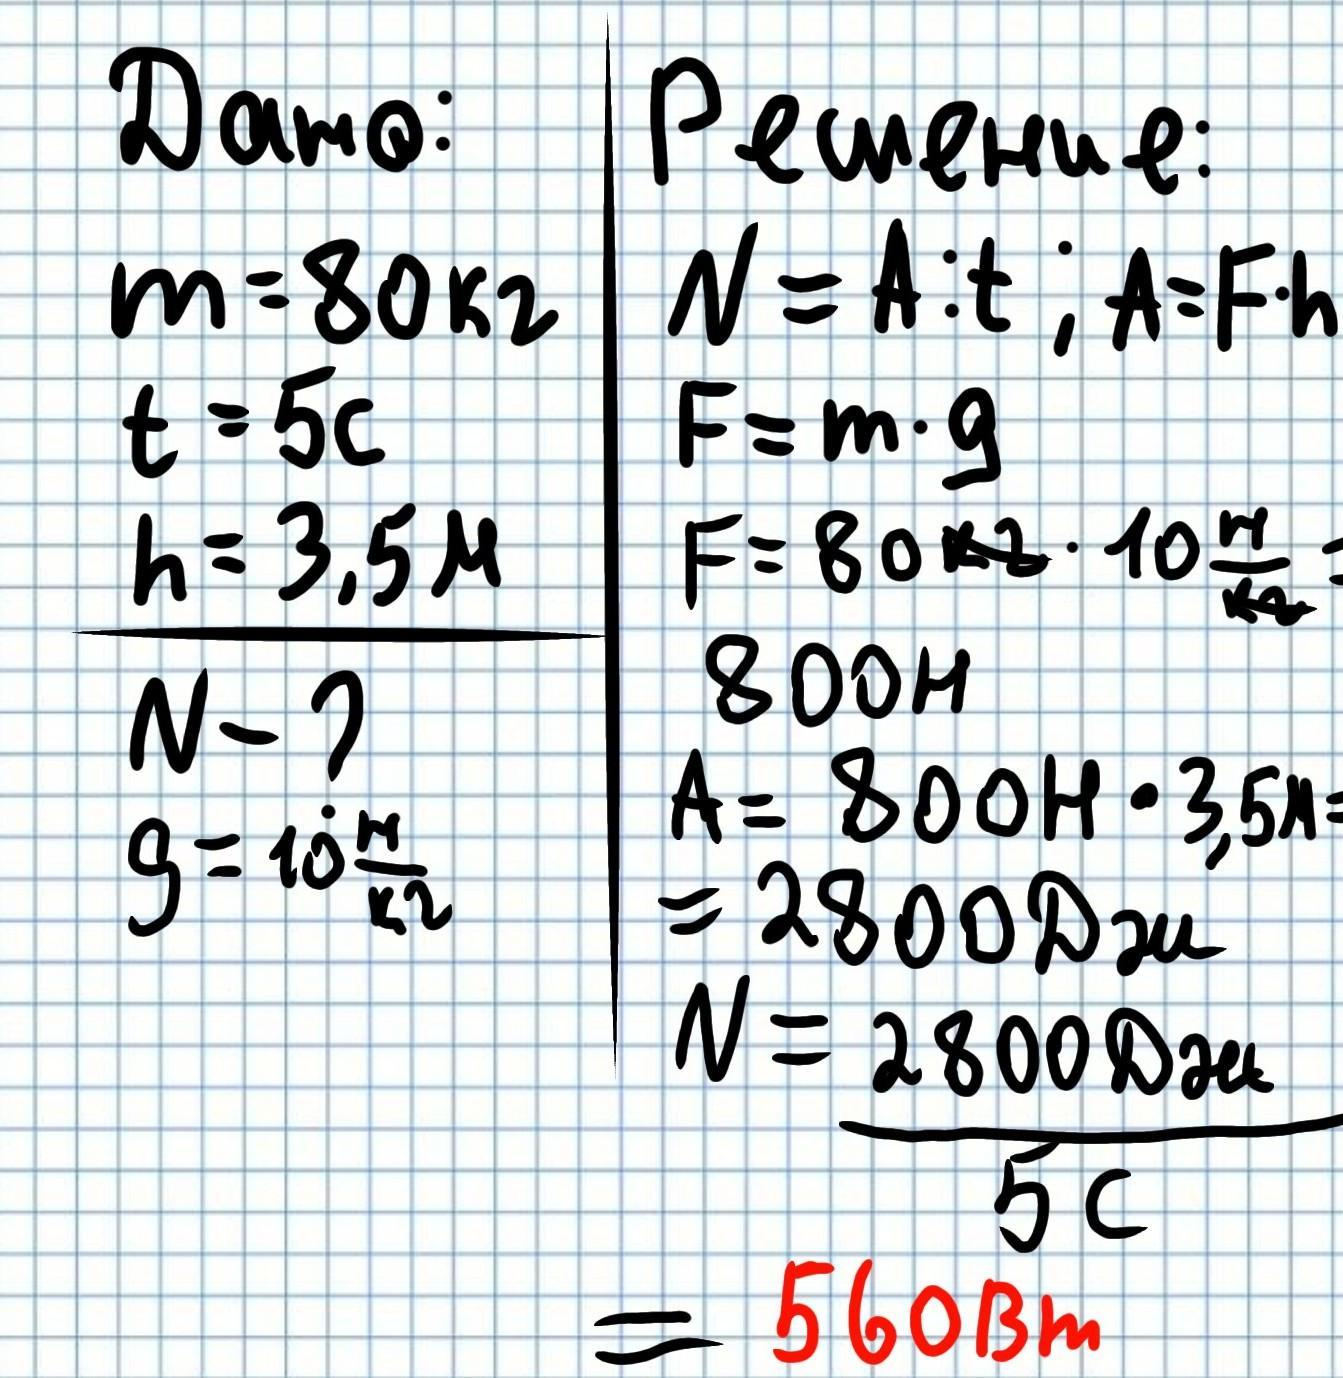 Дано:
m=80кг
t=5с
h=3,5м
N-?
g=10 Н/кг
Решение:
N=A:t; A=F·h
F=m·g
F=80кг·10 Н/кг =
800Н
A=800Н·3,5м=
=2800Дж
N=2800Дж
5с
=560Вт